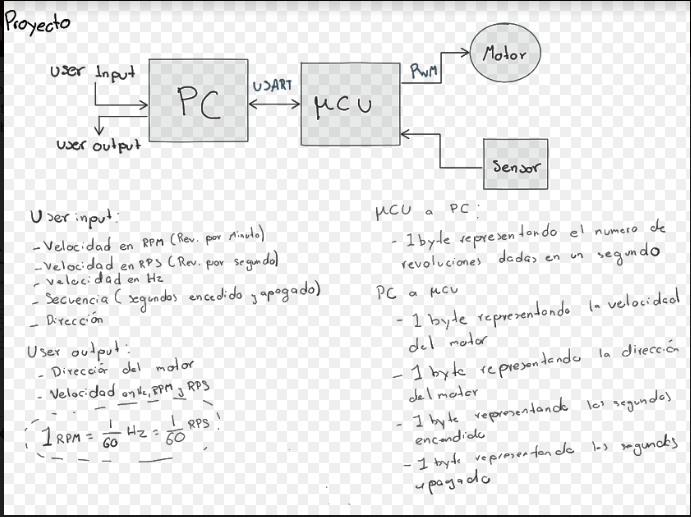 Proyecto
User Input
user output
PC
USART
μCU
PWM
Motor
Sensor
User input:
- Velocidad en RPM (Rev. por Minuto)
- Velocidad en RPS (Rev. por segundo)
- Velocidad en Hz
- Secuencia (segundos encedido y apagado)
- Dirección
User output:
- Dirección del motor
- Velocidad en Hz, RPM y RPS
1 RPM = 1/60 Hz = 1/60 RPS
μCU a PC:
- 1 byte representando el numero de
revoluciones dadas en un segundo
PC a μCU
- 1 byte representando la velocidad
del motor
- 1 byte representando la dirección
del motor
- 1 byte representando los segundos
encendido
- 1 byte representando los segundos
apagado